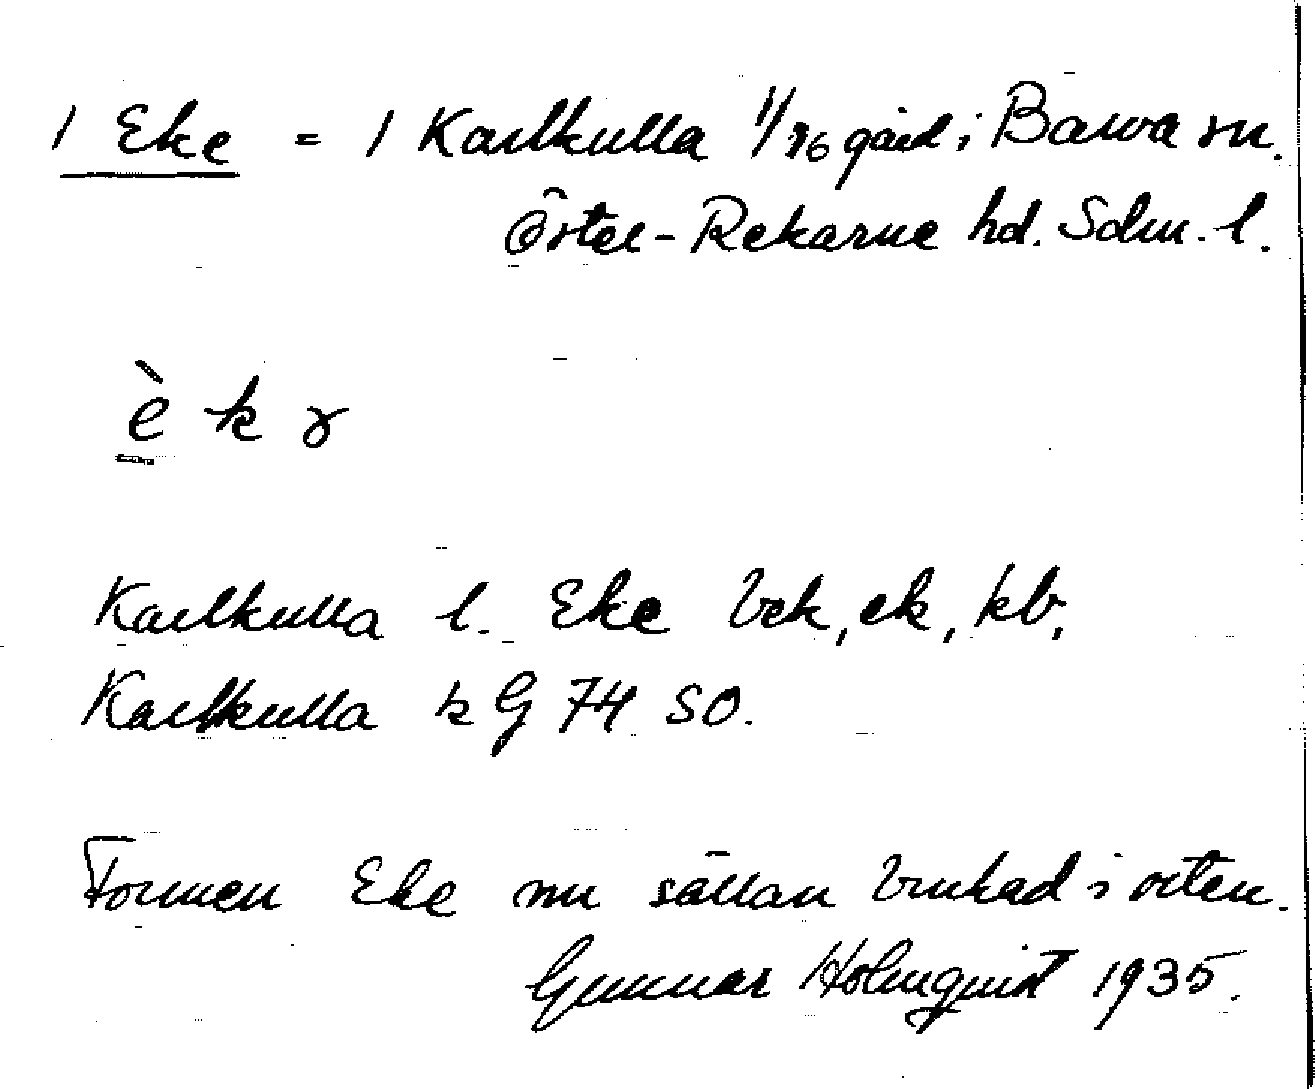 1 Eke = 1 Karlkulla 11/96 gård i Barva sn.
Öster-Rekarne hd. Sdm. l.
è k ɤ
Karlkulla l. Eke bek, ek, kb,
Karlkulla k G 74 SO.
Formen Eke nu sällan brukad i orten.
Gunnar Holmquist 1935.